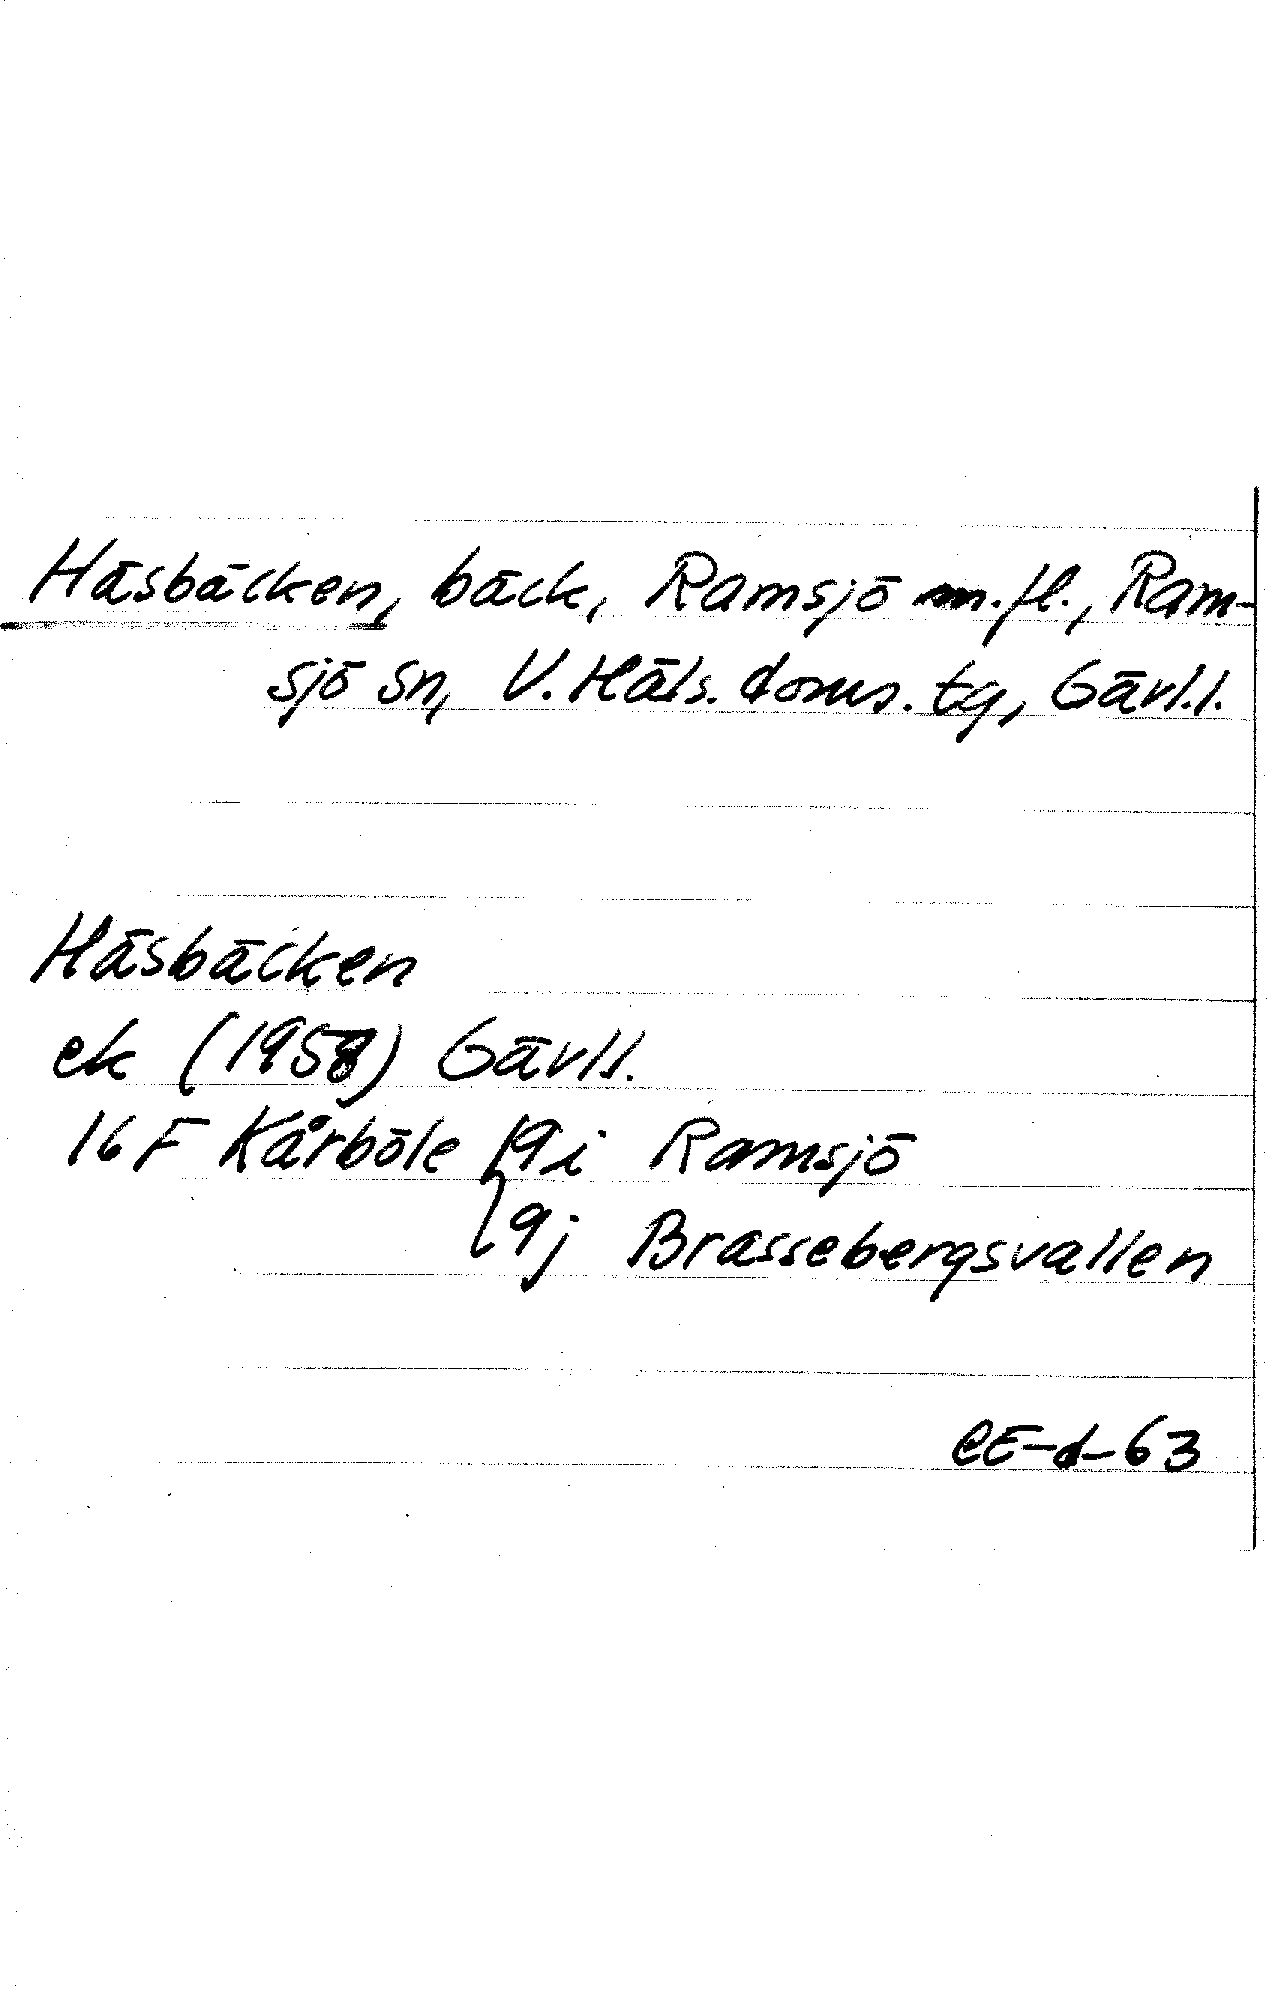 Häsbäcken, bäck, Ramsjö m.fl., Ram-
sjö sn, V. Häls. doms. tg, Gävl.l.
Häsbäcken
ek (1958) Gävll.
16 F Kårböle { 9 i Ramsjö
9 j Brassebergsvallen
CE-d-63